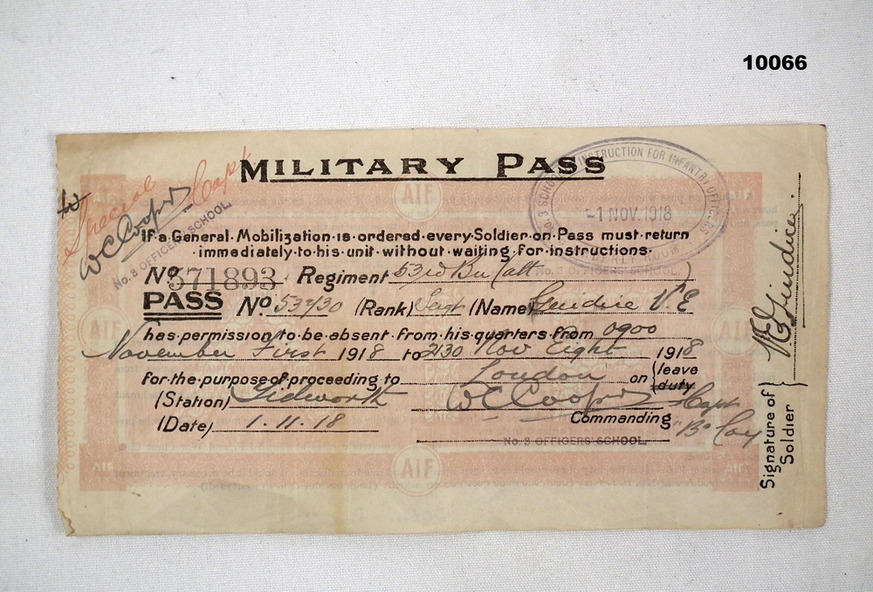 10066
MILITARY PASS
No. 3 SCHOOL OF INSTRUCTION FOR INFANTRY OFFICERS
-1 NOV. 1918
Special Capt
W C Cooper
No. 3 OFFICERS' SCHOOL
If a General Mobilization is ordered every Soldier on Pass must return
immediately to his unit without waiting for instructions.
No. 571893 Regiment 53rd Bn
No. 3 OFFICERS' SCHOOL
PASS No. (Rank) Sergt (Name) Giudice V. E
has permission to be absent from his quarters from 0900
November First 1918 to 2130 Nov Eight 1918
for the purpose of proceeding to London on (leave
duty
(Station) Tidworth W C Cooper Capt
Commanding "B" Coy
(Date) 1.11.18
No. 3 OFFICERS' SCHOOL
Signature of Soldier V E Giudice
AIF
AIF
AIF
AIF